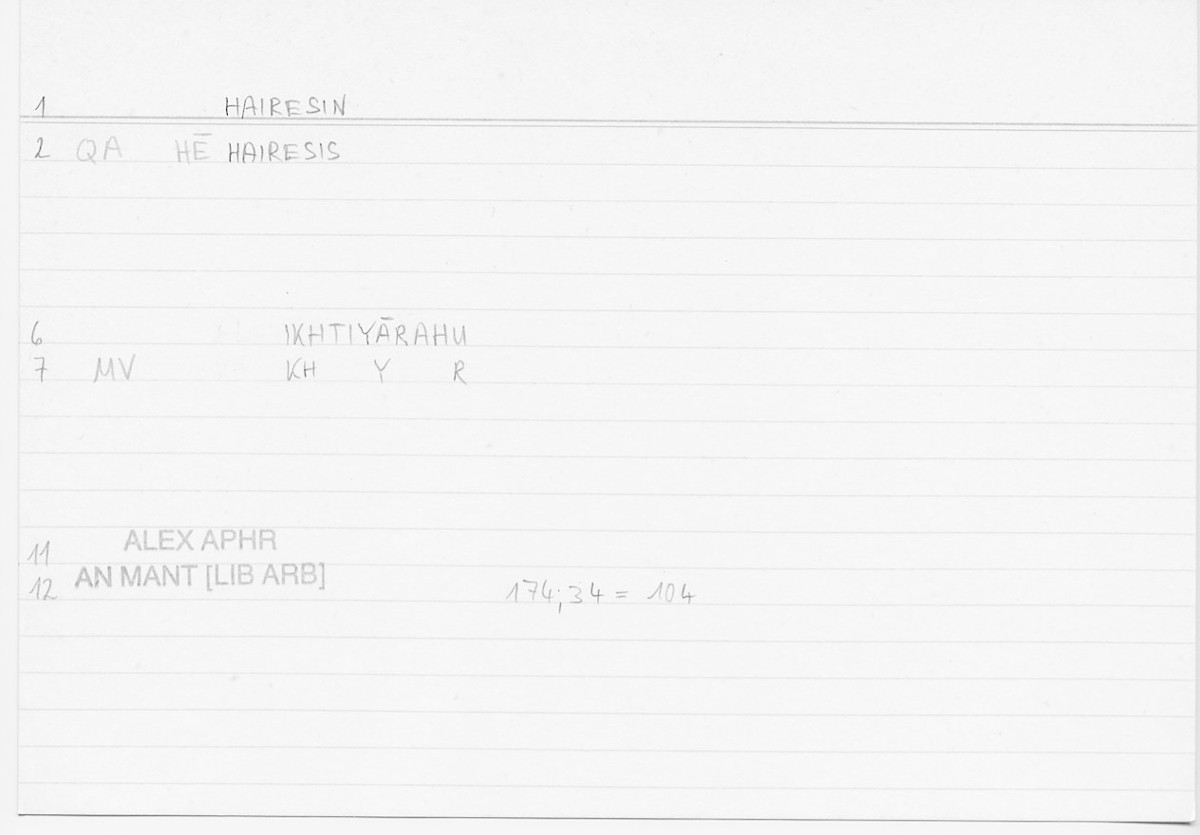 1 HAIRESIN
2 QA HĒ HAIRESIS
6 IKHTIYĀRAHU
7 MV KH Y R
11 ALEX APHR
12 AN MANT [LIB ARB] 174;34 = 104